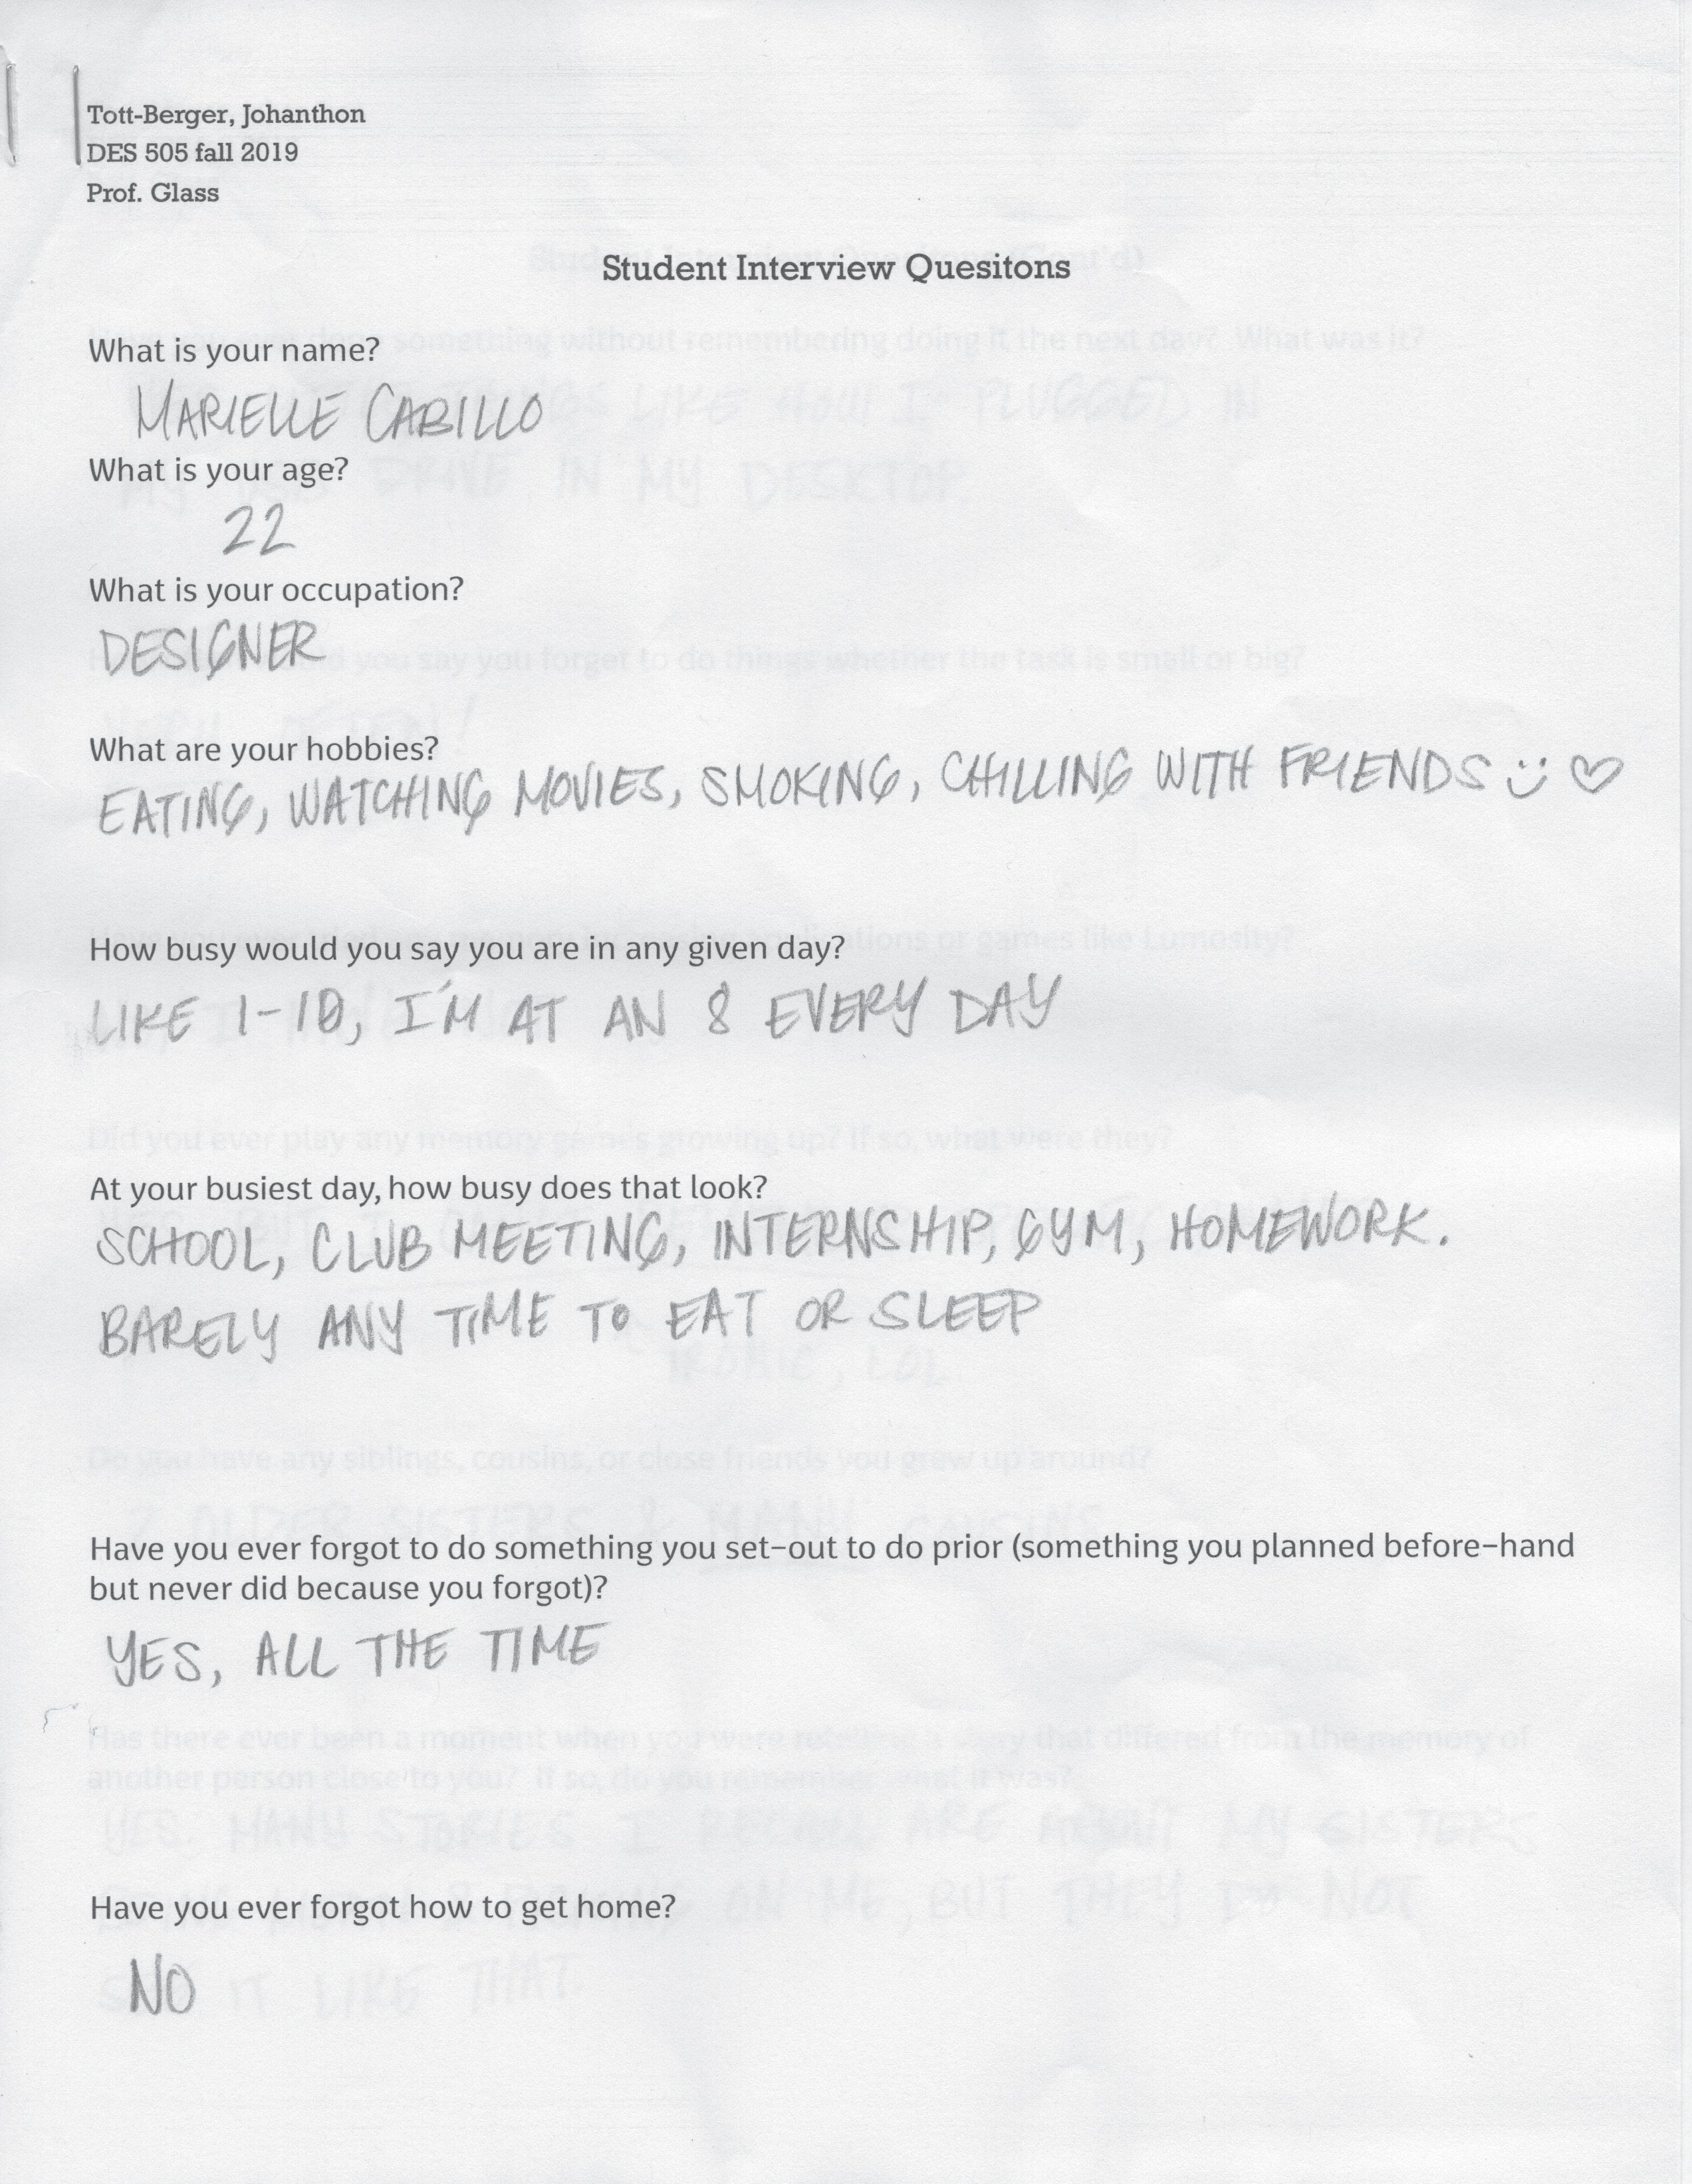 Tott-Berger, Johanthon
DES 505 fall 2019
Prof. Glass
Student Interview Quesitons
What is your name?
MARIELLE CABILLO
What is your age?
22
What is your occupation?
DESIGNER
What are your hobbies?
EATING, WATCHING MOVIES, SMOKING, CHILLING WITH FRIENDS
How busy would you say you are in any given day?
LIKE 1-10, I'M AT AN 8 EVERY DAY
At your busiest day, how busy does that look?
SCHOOL, CLUB MEETING, INTERNSHIP, GYM, HOMEWORK.
BARELY ANY TIME TO EAT OR SLEEP
Have you ever forgot to do something you set-out to do prior (something you planned before-hand
but never did because you forgot)?
YES, ALL THE TIME
Have you ever forgot how to get home?
NO